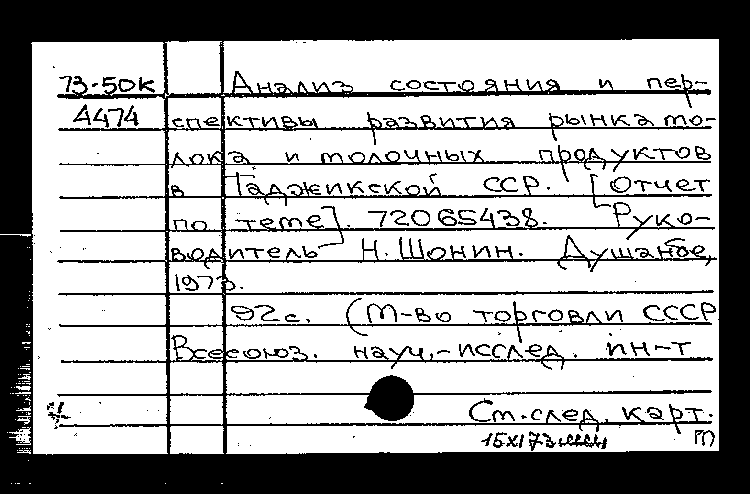 73-50К Анализ состояния и пер-
А474 спективы развития рынка мо-
лока и молочных продуктов
в Таджикской ССР. [Отчет
по теме]. 72065438. Руко-
водитель Н. Шонин. Душанбе,
1973.
92с. (М-во торговли СССР
Всесоюз. науч.-исслед. ин-т
См. след. карт.
15XI73
m